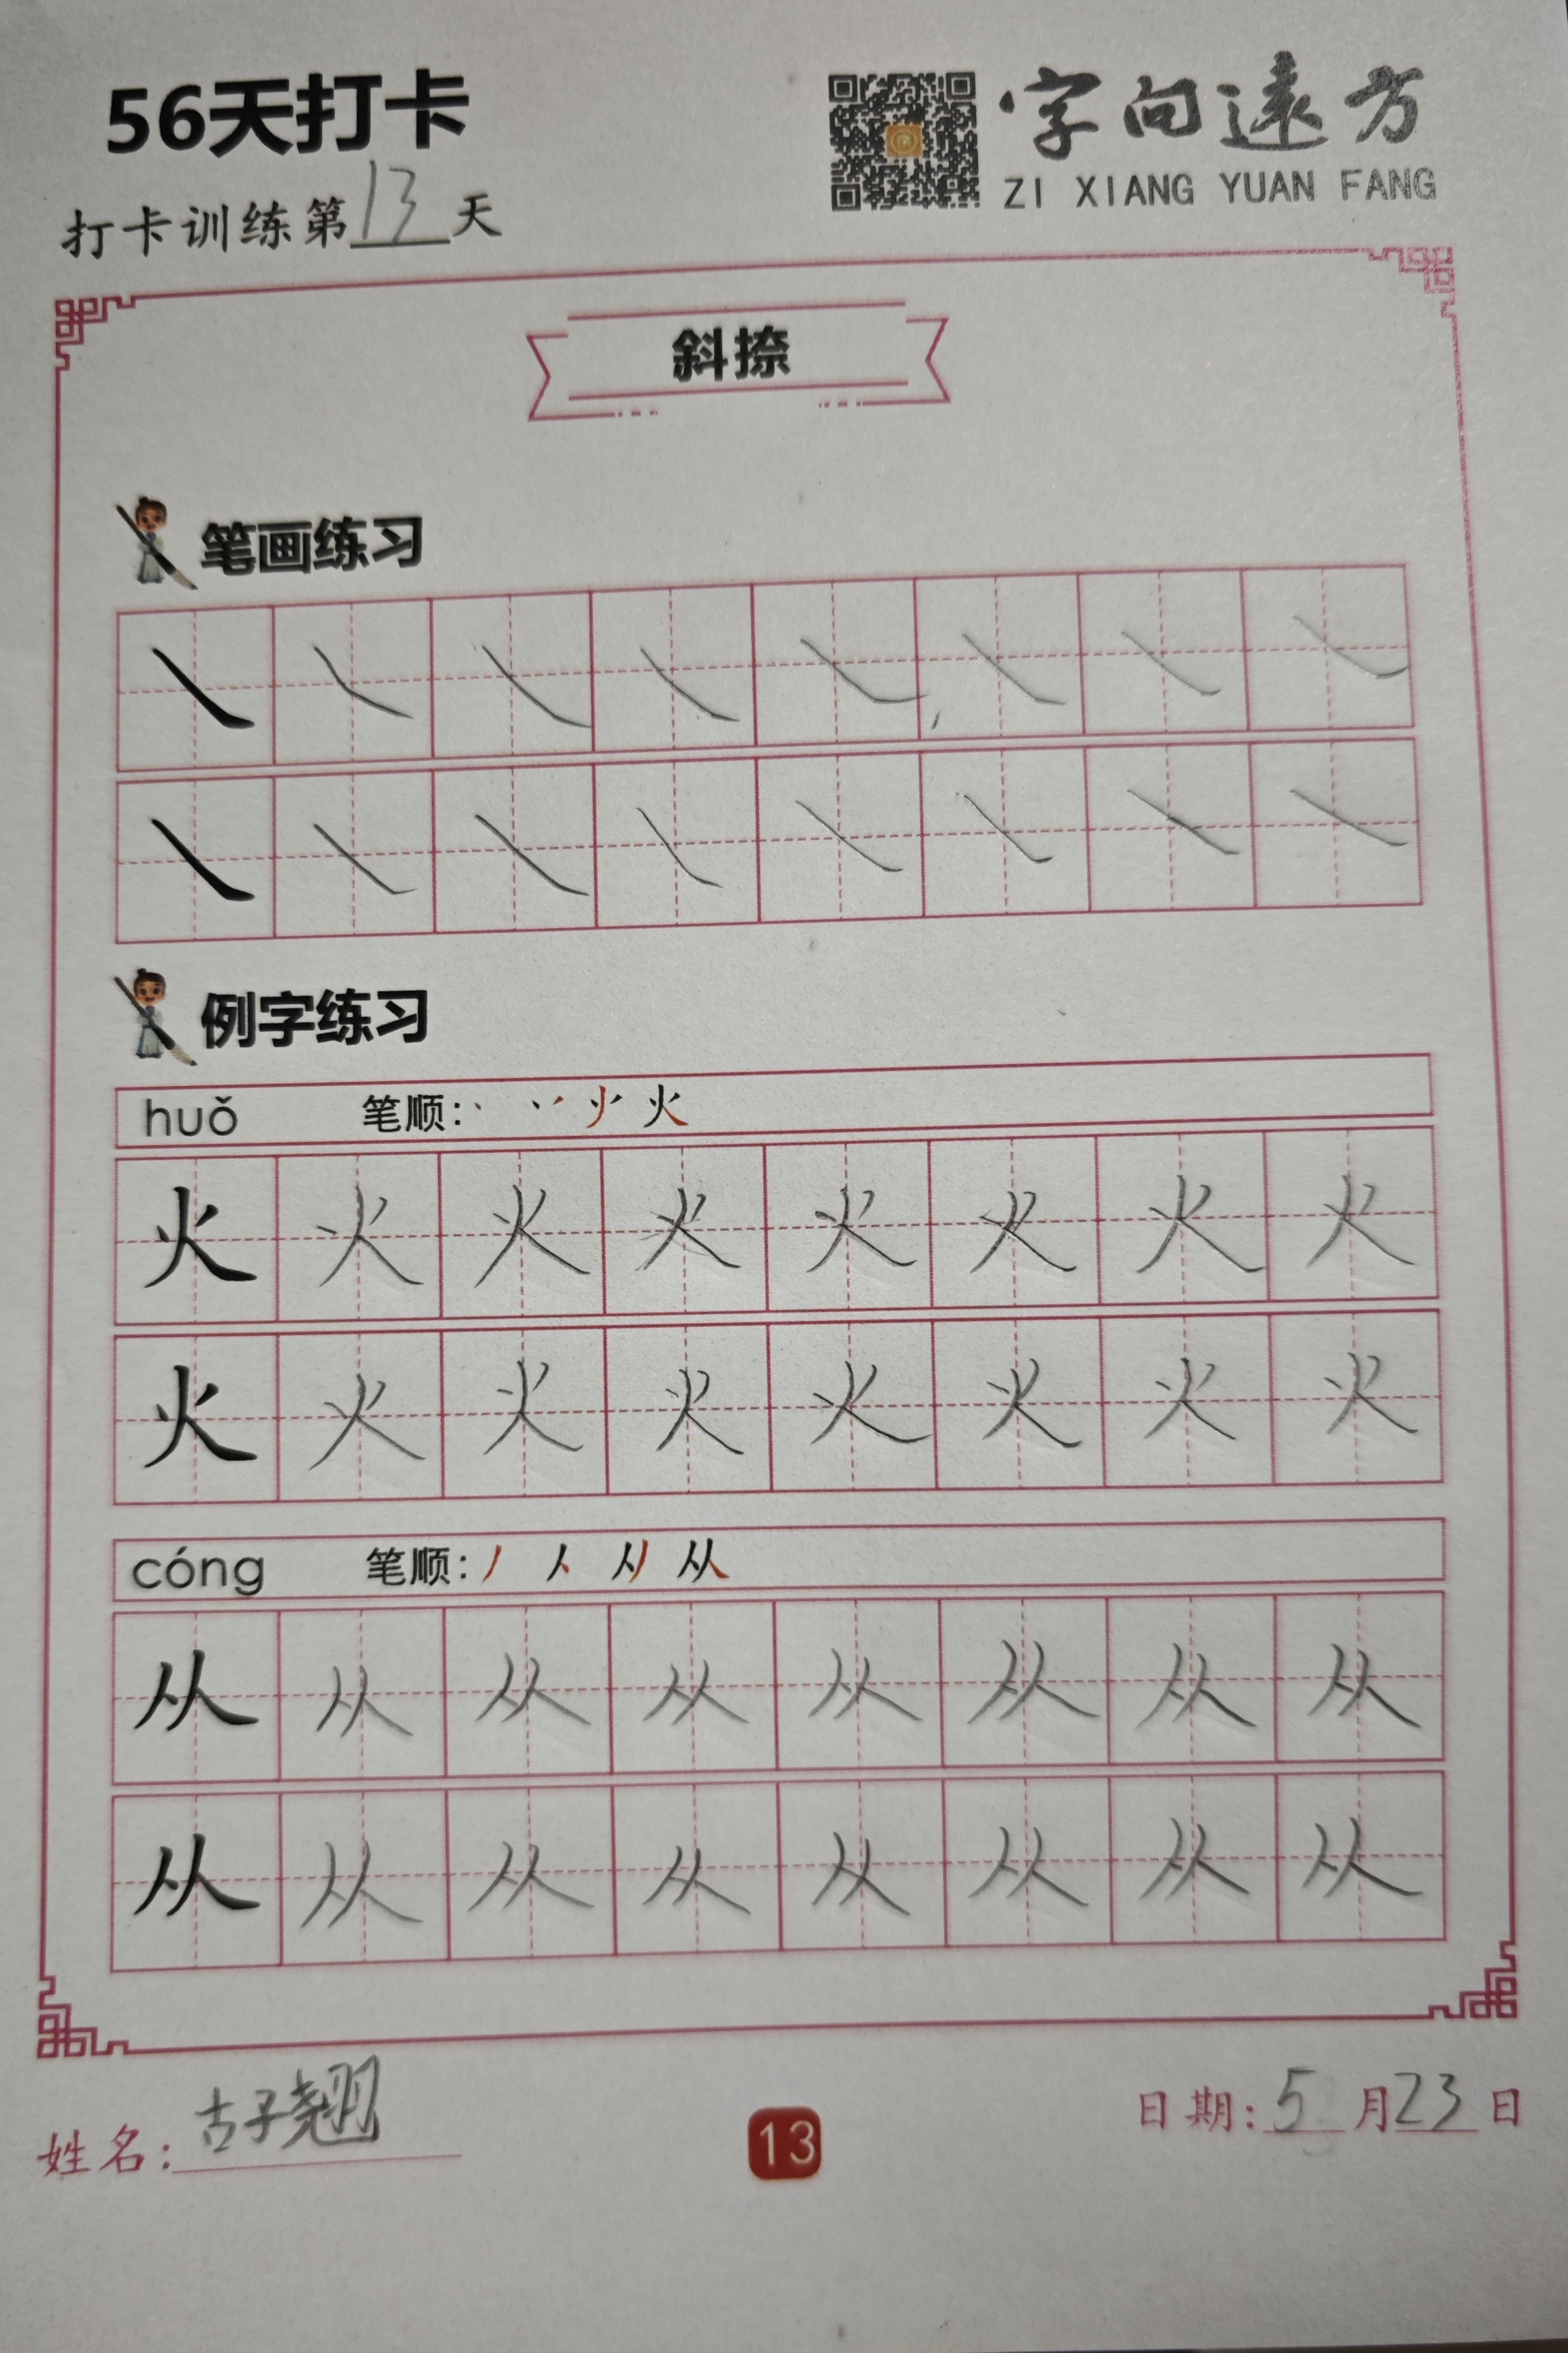 56天打卡
字向遠方
ZI XIANG YUAN FANG
打卡训练第13天
斜捺
笔画练习
例字练习
huǒ 笔顺: 火
火 火 火 火 火 火 火 火
火 火 火 火 火 火 火 火
cóng 笔顺: 从
从 从 从 从 从 从 从 从
从 从 从 从 从 从 从 从
姓名: 古子翘
13
日期: 5月23日